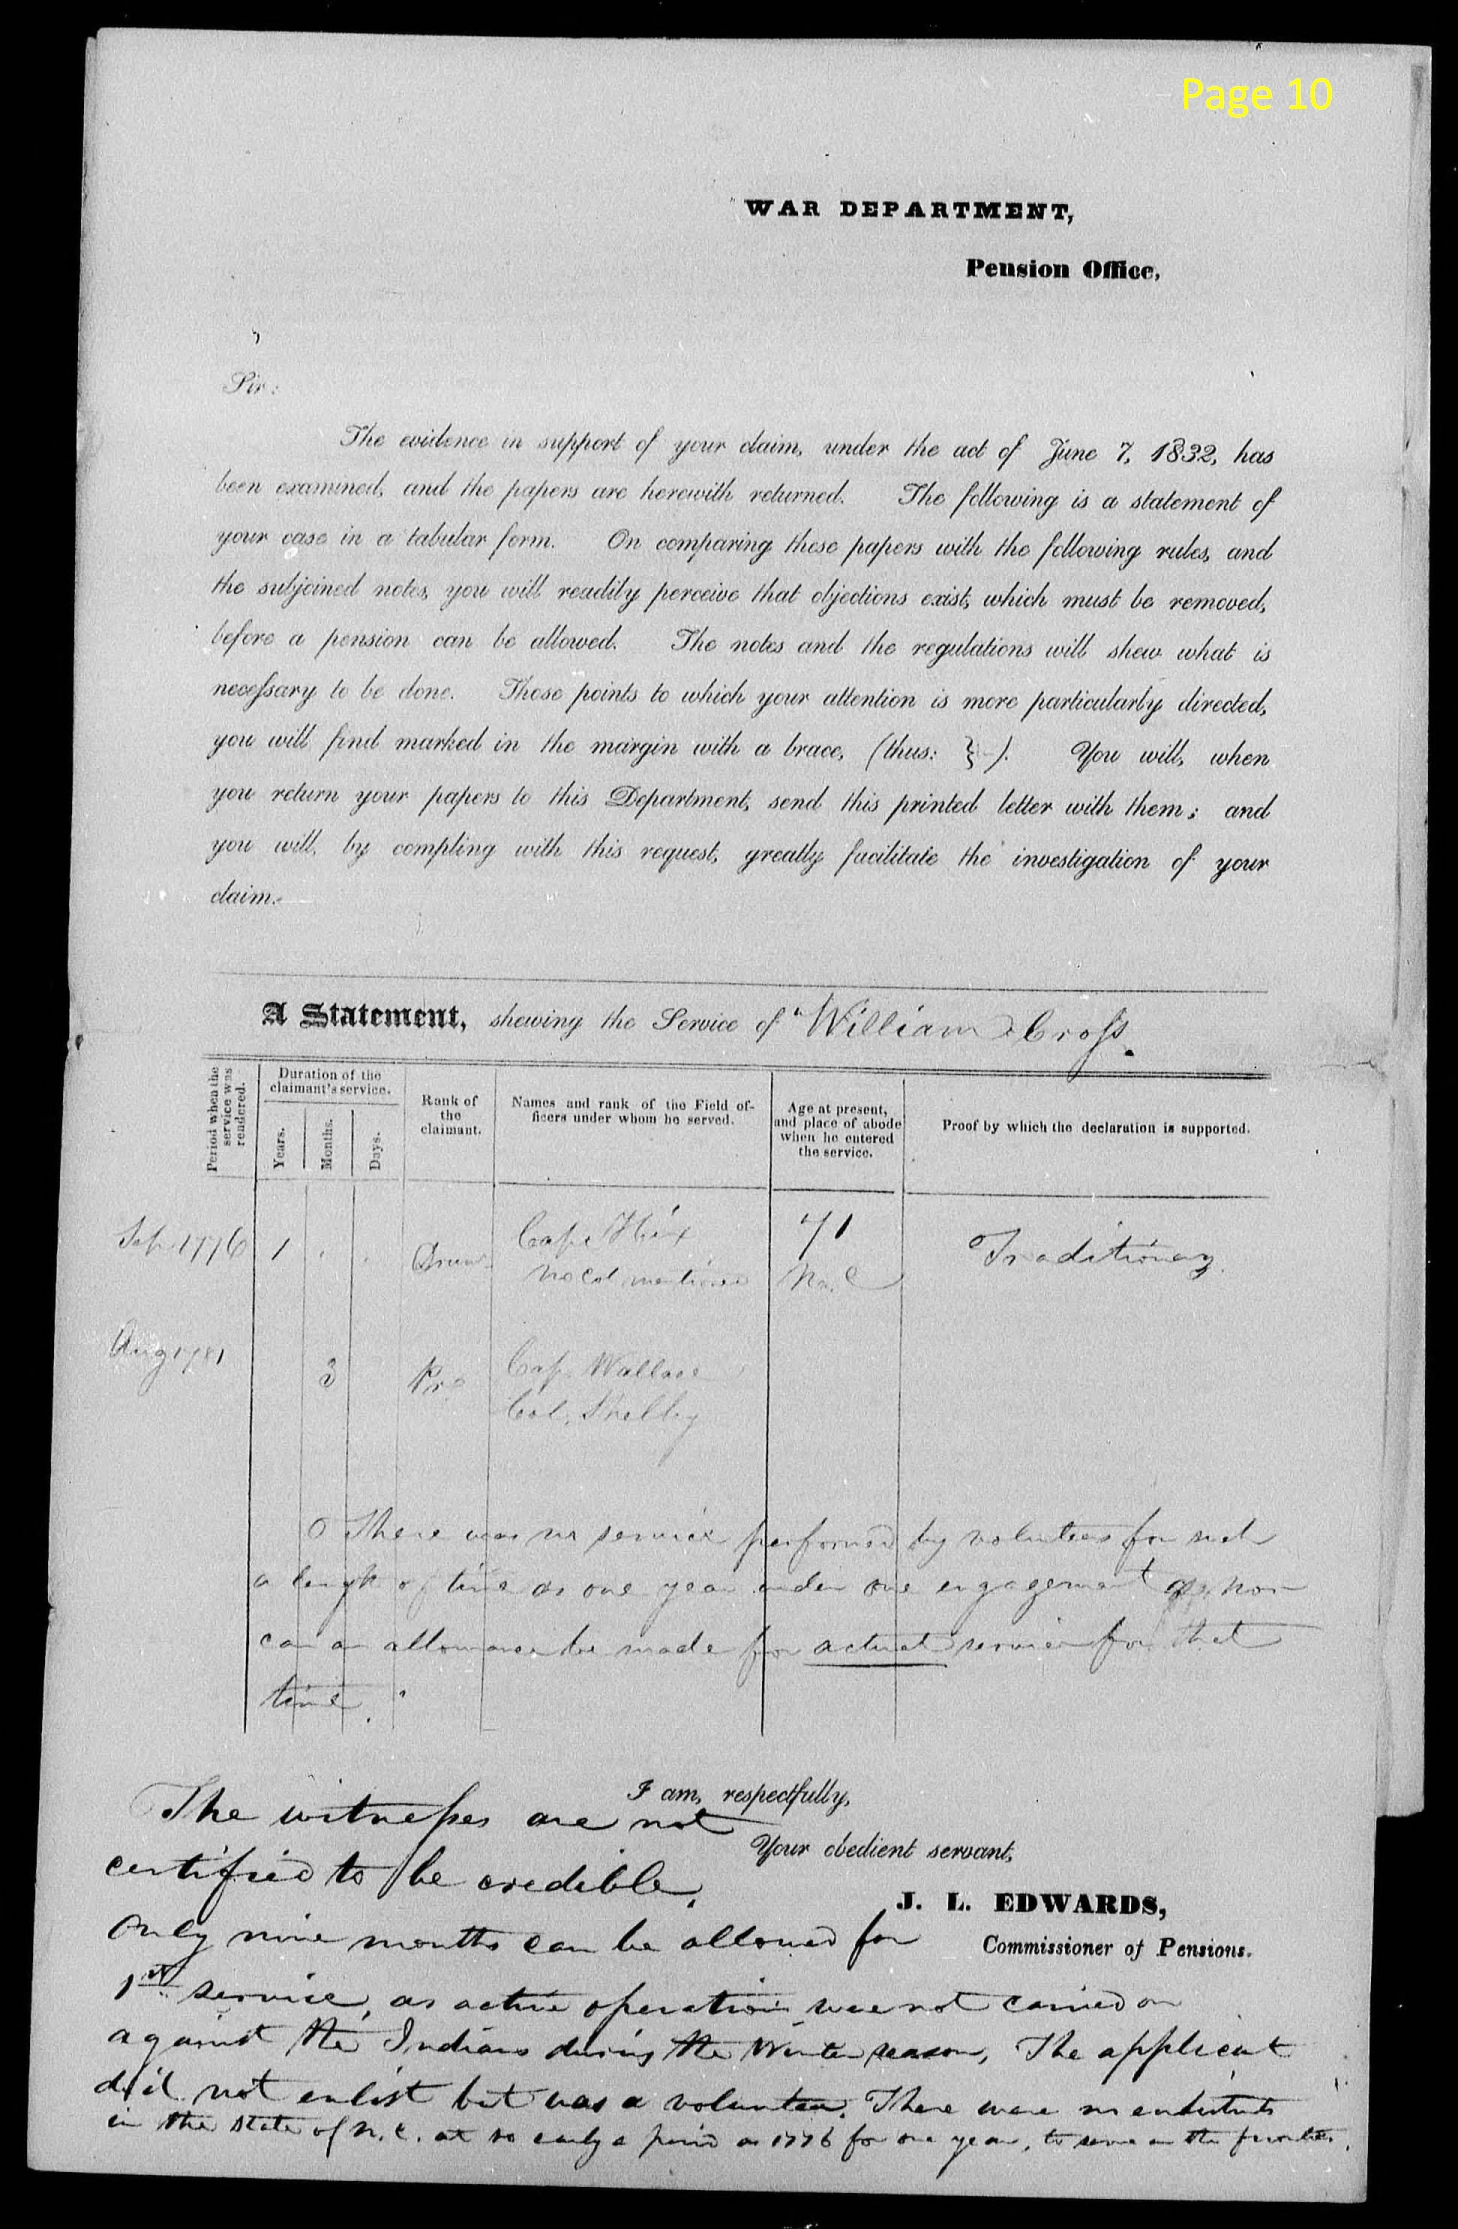 Page 10
WAR DEPARTMENT,
Pension Office,
Sir:
The evidence in support of your claim, under the act of June 7, 1832, has
been examined, and the papers are herewith returned. The following is a statement of
your case in a tabular form. On comparing these papers with the following rules, and
the subjoined notes, you will readily perceive that objections exist, which must be removed,
before a pension can be allowed. The notes and the regulations will shew what is
necessary to be done. Those points to which your attention is more particularly directed,
you will find marked in the margin with a brace, (thus: }-). You will, when
you return your papers to this Department, send this printed letter with them; and
you will, by compling with this request, greatly facilitate the investigation of your
claim.
A Statement, shewing the Service of William Cross.
Period when the service was rendered.
Duration of the claimant's service.
Years.
Months.
Days.
Rank of the claimant.
Names and rank of the Field officers under whom he served.
Age at present, and place of abode when he entered the service.
Proof by which the declaration is supported.
Sep 1776 1 Capt Hix 71 Traditionary.
no Col mentioned No. C
Aug 1781 3 Pri. Cap. Wallace
Col. Shelby
There was no service performed by volunteers for such
a length of time as one year under one engagement nor
can an allowance be made for actual service for that
time.
I am, respectfully,
Your obedient servant,
J. L. EDWARDS,
Commissioner of Pensions.
The witnesses are not
certified to be credible.
Only nine months can be allowed for
1st service, as active operations were not carried on
against the Indians during the Winter season, The applicant
did not enlist but was a volunteer. There were no enlistments
in the State of N.C. at so early a period as 1776 for one year, to serve on the frontier.